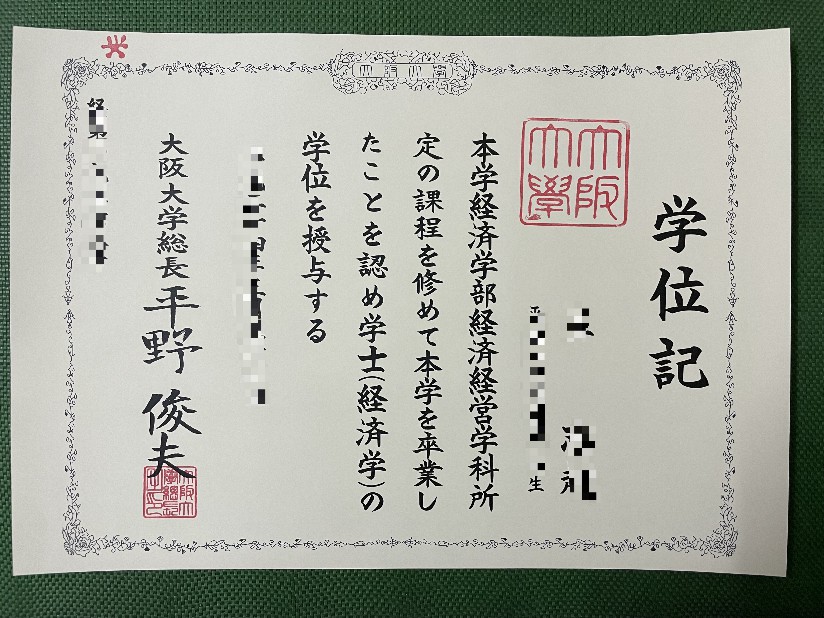 学位記
大阪
大學
生
本学経済学部経済経営学科所
定の課程を修めて本学を卒業し
たことを認め学士(経済学)の
学位を授与する
大阪大学総長 平野俊夫